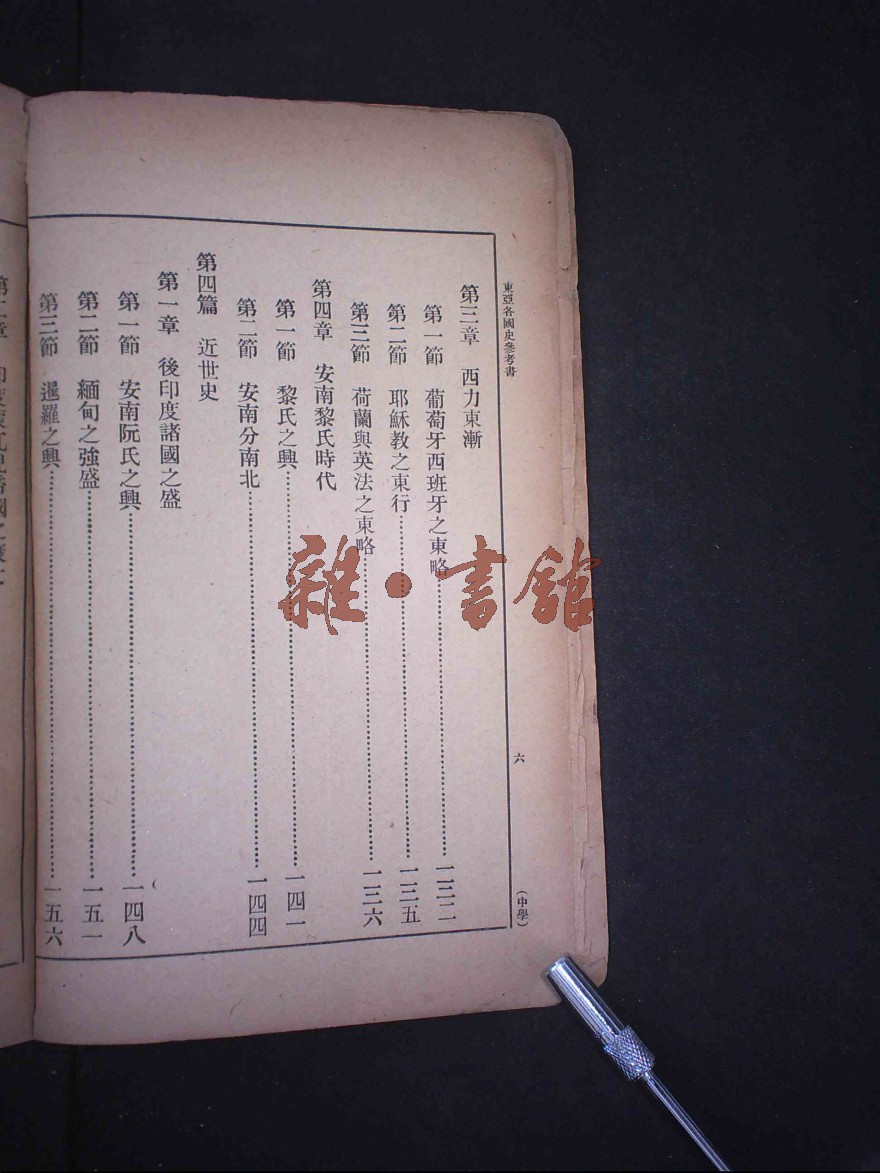 東亞各國史參考書
六
（中學）
第三章　西力東漸
第一節　葡萄牙西班牙之東略……一三二
第二節　耶穌教之東行……一三五
第三節　荷蘭與英法之東略……一三六
第四章　安南黎氏時代
第一節　黎氏之興……一四一
第二節　安南分南北……一四四
第四篇　近世史
第一章　後印度諸國之盛
第一節　安南阮氏之興……一四八
第二節　緬甸之強盛……一五一
第三節　暹羅之興……一五六
雜·書館